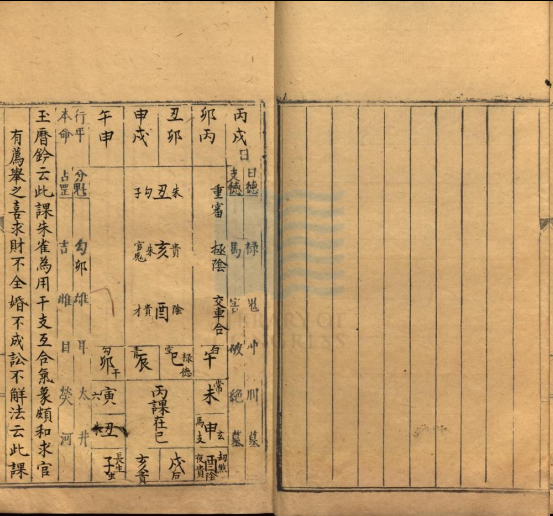 丙戌日
卯丙
丑卯
申戌
午申
日德
支德
祿
馬
鬼
害
冲
破
刑
絕
墓
墓
重審
極陰
交車合
子勾丑朱
鬼朱亥貴
才貴酉陰
午
巳
辰
卯
未
申
酉
戌
亥
子
丑
寅
丙課在巳
行年
本命
分野
占
吉
勾卯
雄
雌
耳
目
太
熒
井
河
玉曆鈐云此課朱雀為用干支互合氣象頗和求官
有薦舉之喜求財不全婚不成訟不解法云此課